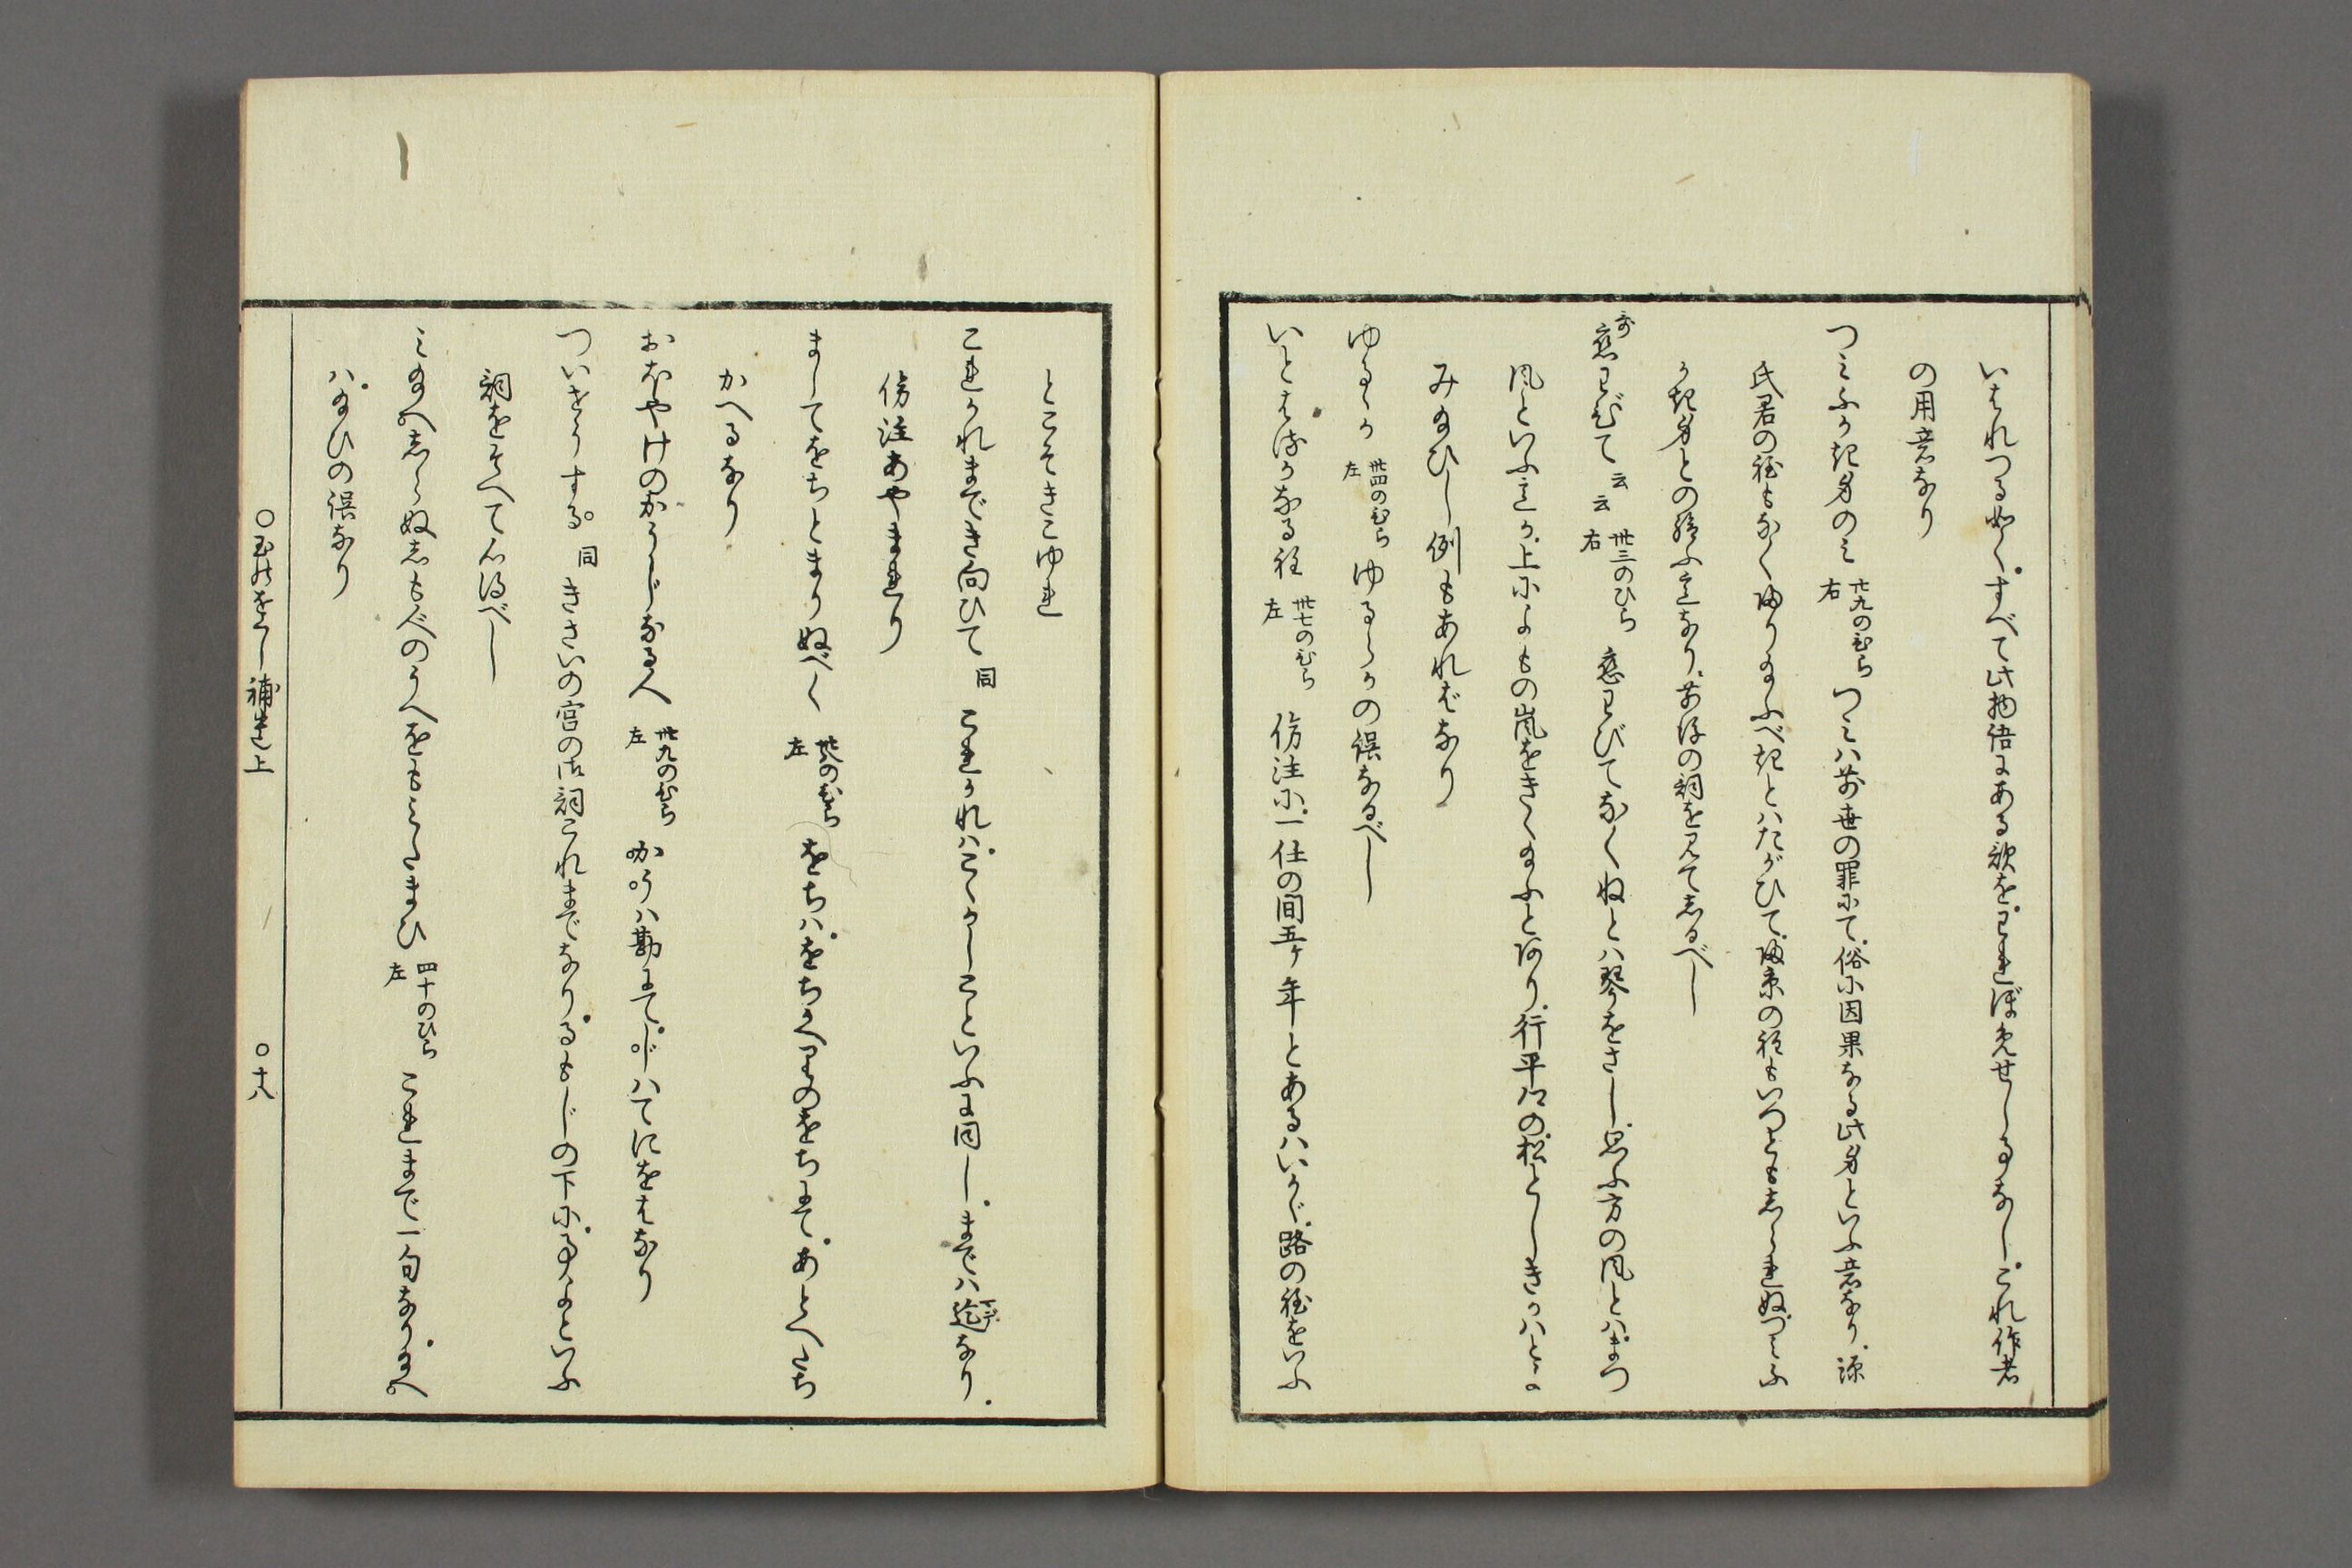 いはれつる如く。すべて此物語にある歌を。われぼめせしるなし。これ作者
の用意なり
つみふかき身のみ 廿九のひら右 つみハ前世の罪にて。俗に因果なる此身といふ意なり。源
氏君の往もなくかへり給ふべきとハたがひて。帰京の程もいつともしられぬ。つみふ
かき身との給ふ意なり。前後の詞を見てしるべし
哥 恋わびて云云 卅三のひら右 恋わびてなくねとハ琴をさし。思ふ方の風とハ。まつ
風といふ意か。上によもの嵐をきゝ給ふとあり。行平卿の。松としきかハとよ
み給ひし例もあれバなり
ゆるゝか 卅四のひら左 ゆるらかの誤なるべし
いとはるかなる程 卅七のひら左 傍注に。一任の間五ケ年とあるハいかゞ。路の程をいふ
とこそきこゆれ
これかれまでき向ひて 同 これかれハ。こゝかしこといふに同し。までハ迄なり。
傍注あやまれり
ましてをちとまりぬべく 卅八のひら左 をちハ。をちかへりのをちにて。あとへたち
かへるなり
おほやけのかうじなる人 卅九のひら左 かうハ勘にて。じハてにをはなり
ついせうする。同 きさいの宮の御詞これまでなり。るもじの下に。事よといふ
詞をそへて心得べし
み給へしらぬしも人のうへをもみたまひ 四十のひら左 これまで一句なり。給へ
ハ。給ひの誤なり
○玉のをくし補遺上 ○十八